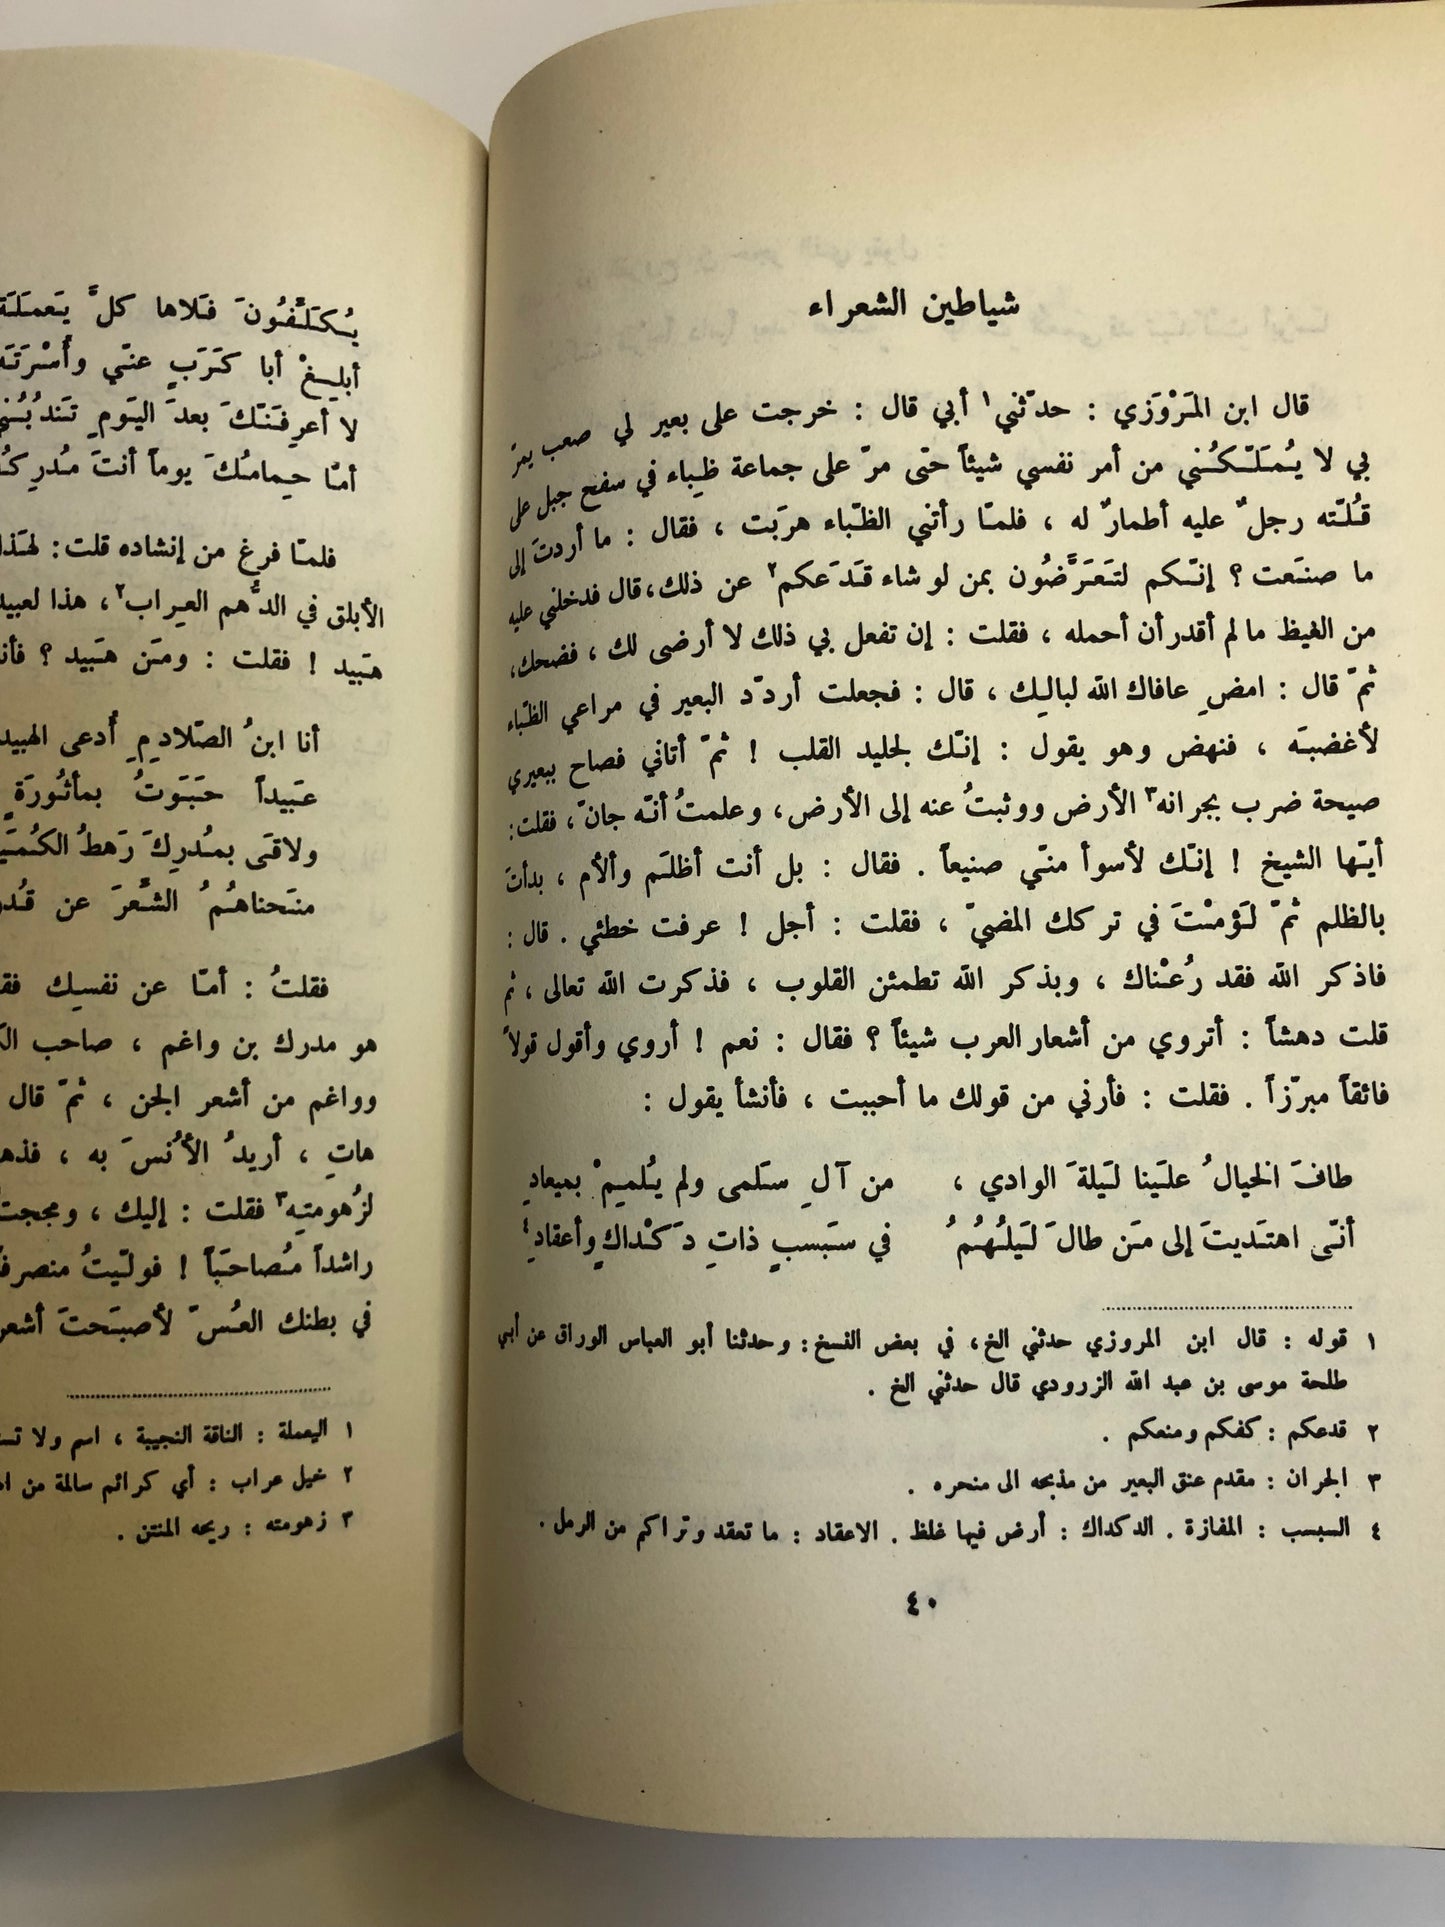 شياطين الشعراء
قال ابن المَرْوَزي : حدّثني١ أبي قال : خرجت على بعير لي صعب يمرّ
بي لا يُمَلّكُني من أمر نفسي شيئاً حتى مرّ على جماعة ظِباء في سفح جبل على
قُلّته رجلٌ عليه أطمارٌ له ، فلمّا رأتني الظّباء هرَبت ، فقال : ما أردتَ إلى
ما صنَعت ؟ إنّكم لتَعَرَّضُون بمن لو شاء قَدَعكم٢ عن ذلك، قال فدخلني عليه
من الغيظ ما لم أقدر أن أحمله ، فقلت : إن تفعل بي ذلك لا أرضى لك ، فضحك،
ثمّ قال : امضِ عافاك الله لبالِك ، قال : فجعلت أردّد البعير في مراعي الظّباء
لأغضبَه ، فنهض وهو يقول : إنّك لجليد القلب ! ثمّ أتاني فصاح ببعيري
صيحة ضرب بجرانه٣ الأرض ووثبتُ عنه إلى الأرض، وعلمتُ أنّه جانّ، فقلت:
أيّها الشيخ ! إنّك لأسوأ منّي صنيعاً . فقال : بل أنت أظلَم وألأم ، بدأتَ
بالظلم ثمّ لَؤمْتَ في تركك المضيّ ، فقلت : أجل ! عرفت خطئي . قال :
فاذكر الله فقد رُعْناك ، وبذكر الله تطمئن القلوب ، فذكرت الله تعالى ، ثم
قلت دهشاً : أتروي من أشعار العرب شيئاً ؟ فقال : نعم ! أروي وأقول قولاً
فائقاً مبرّزاً . فقلت : فأرني من قولك ما أحببت ، فأنشأ يقول :
طافَ الخيالُ علَينا لَيلَةَ الوادي ، من آلِ سَلمى ولم يُلمِمْ بميعادِ
أنّى اهتَديتَ إلى مَن طالَ لَيلُهُمُ في سَبسبٍ ذاتِ دَكْداكٍ وأعقادِ٤
١ قوله : قال ابن المروزي حدثني الخ، في بعض النسخ : وحدثنا أبو العباس الوراق عن أبي
طلحة موسى بن عبد الله الزرودي قال حدثني الخ .
٢ قدعكم : كفكم ومنعكم .
٣ الجران : مقدم عنق البعير من مذبحه الى منحره .
٤ السبسب : المفازة . الدكداك : أرض فيها غلظ . الاعقاد : ما تعقد وتراكم من الرمل .
٤٠
يُكَلَّفُونَ فَلاها كلَّ يَعمَلَة
أبلِغْ أبا كَرَبٍ عنّي وأُسْرَتَه
لا أعرِفَنّكَ بعدَ اليَومِ تَندُبُني
أمّا حِمامُكَ يوماً أنتَ مُدرِكُه
فلمّا فرغ من إنشاده قلت:
الأبلق في الدُّهم العِراب٢، هذا لعبيد
هَبيد ! فقلت : ومَن هَبيد ؟
أنا ابنُ الصّلادِمِ أُدعى الهبيد
عَبيداً حَبَوتُ بمأثُورَةٍ
ولاقَى بمُدرِكَ رَهطُ الكُمَيت
منَحناهُمُ الشّعرَ عن
فقلتُ : أمّا عن نفسِك
هو مدرك بن واغم ، صاحب
وواغم من أشعر الجن ، ثمّ قال
هاتِ ، أريدُ الأُنسَ به ،
لزُهومتِه٣ فقلت : إليك ، ومججت
راشداً مُصاحَباً ! فولّيتُ
في بطنك العُسّ لأصبَحتَ
١ اليعملة : الناقة النجيبة ، اسم ولا
٢ خيل عراب : أي كرائم سالمة من
٣ زهومته : ريحه المنتن .